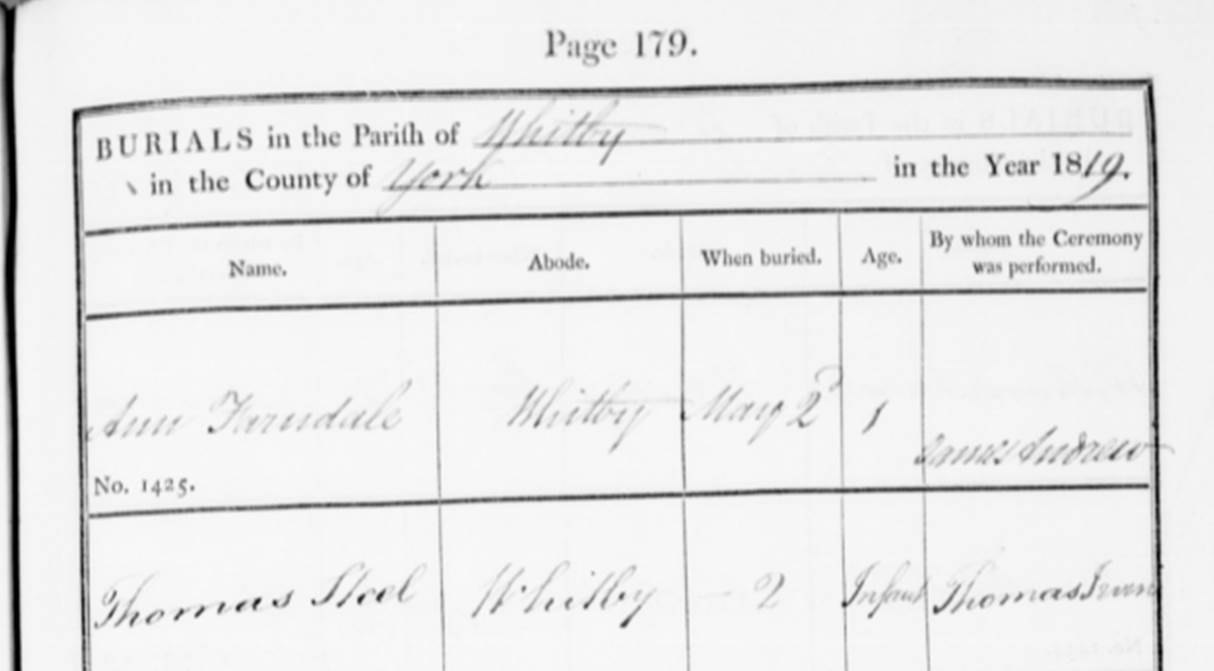 Page 179.
BURIALS in the Pariſh of Whitby
in the County of York in the Year 1819.
Name. Abode. When buried. Age. By whom the Ceremony was performed.
Ann Farndale Whitby May 2d 1 James Andrew
No. 1425.
Thomas Steel Whitby — 2 Infant Thomas